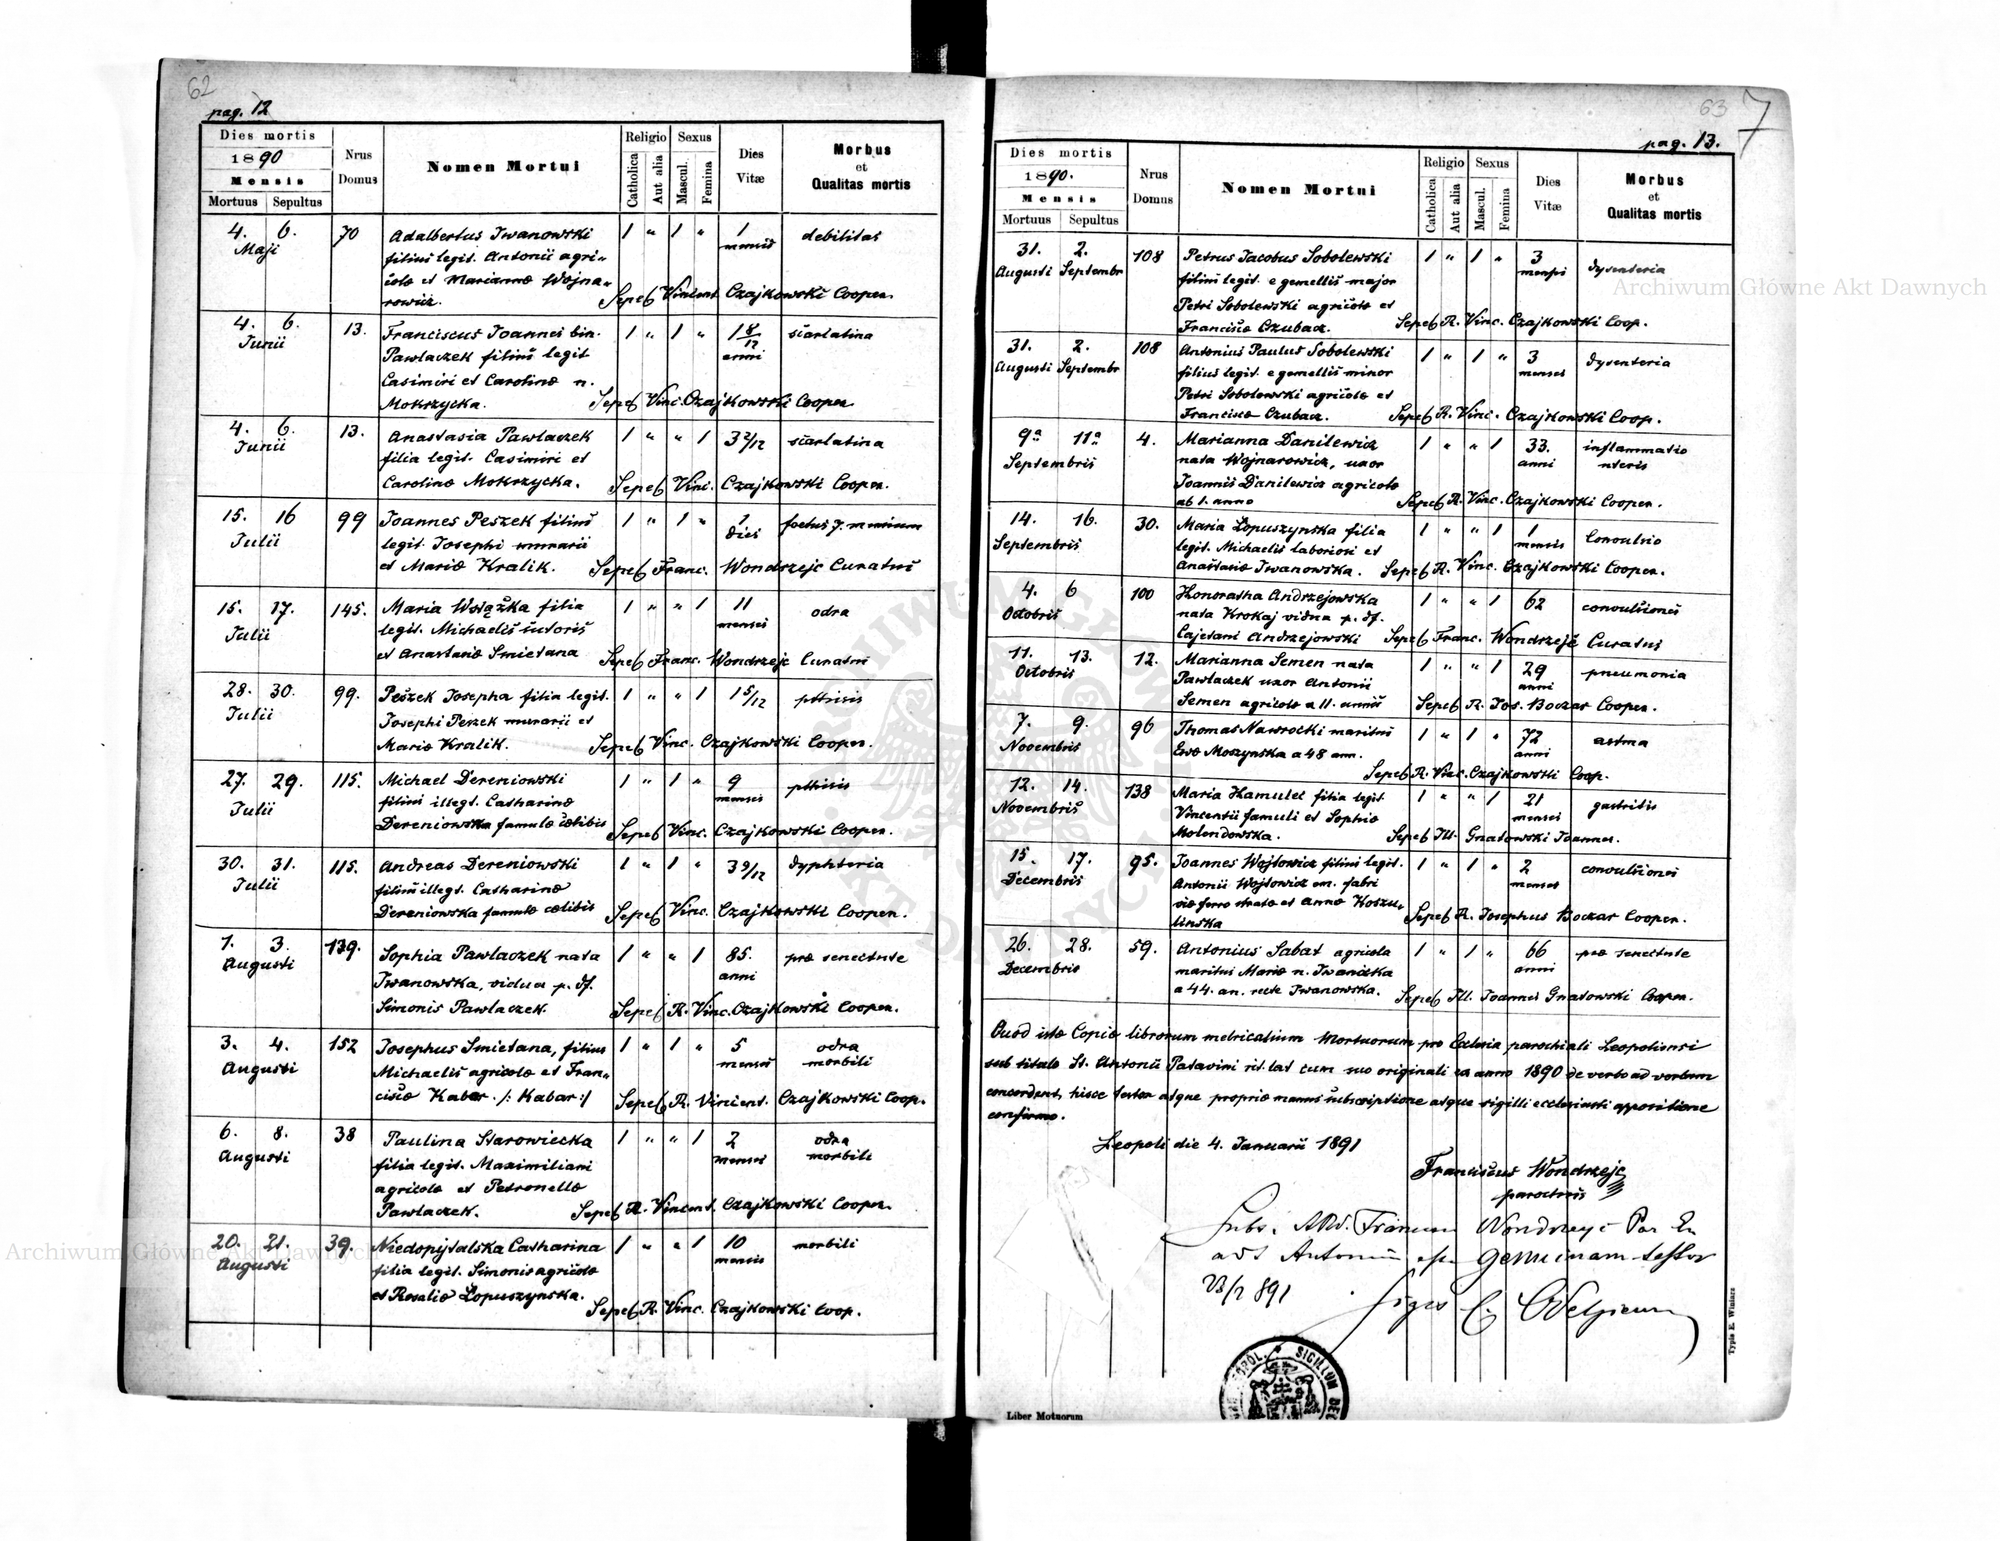 62
pag. 12
Dies mortis
1890
Mensis
Mortuus Sepultus
Nrus Domus
Nomen Mortui
Religio
Catholica
Aut alia
Sexus
Mascul.
Femina
Dies Vitæ
Morbus et Qualitas mortis
4. 6. 70 Adalbertus Iwanowski 1 " 1 " 1 debilitas
Maji filius legit. Antonii agri- mensis
colæ et Mariannæ Wojna-
rowicz. Sepel. Vincent. Czajkowski Cooper.
4. 6. 13. Franciscus Joannes bin. 1 " 1 " 1 8/12 scarlatina
Junii Pawlaczek filius legit anni
Casimiri et Carolinæ n.
Mokrzycka. Sepel. Vinc. Czajkowski Cooper
4. 6. 13. Anastasia Pawlaczek 1 " " 1 3 2/12 scarlatina
Junii filia legit. Casimiri et
Carolinæ Mokrzycka. Sepel. Vinc. Czajkowski Cooper.
15. 16 99 Joannes Peszek filius 1 " 1 " 1 foetus 7. mensium
Julii legit. Josephi murarii dies
et Mariæ Kralik. Sepel. Franc. Wondrzejc Curatus
15. 17. 145. Maria Wolążka filia 1 " " 1 11 odra
Julii legit. Michaelis sutoris menses
et Anastasiæ Smietana Sepel. Franc. Wondrzejc Curatus
28. 30. 99. Peszek Josepha filia legit. 1 " " 1 1 5/12 pthisis
Julii Josephi Peszek murarii et
Mariæ Kralik. Sepel. Vinc. Czajkowski Cooper.
27. 29. 115. Michael Dereniowski 1 " 1 " 9 pthisis
Julii filius illegt. Catharinæ menses
Dereniowska famulæ cœlibis Sepel. Vinc. Czajkowski Cooper.
30. 31. 115. Andreas Dereniowski 1 " 1 " 3 9/12 dyphteria
Julii filius illegt. Catharinæ
Dereniowska famulæ cœlibis Sepel. Vinc. Czajkowski Cooper.
1. 3. 139. Sophia Pawlaczek nata 1 " " 1 85. præ senectute
Augusti Iwanowska, vidua p. df. anni
Simonis Pawlaczek. Sepel. R. Vinc. Czajkowski Cooper.
3. 4. 152 Josephus Smietana, filius 1 " 1 " 5 odra
Augusti Michaelis agricolæ et Fran- menses morbili
ciscæ Kaber /: Kabar :/ Sepel. R. Vincent. Czajkowski Coop.
6. 8. 38 Paulina Starowiecka 1 " " 1 2 odra
Augusti filia legit. Maximiliani menses morbili
agricolæ et Petronellæ
Pawlaczek. Sepel. R. Vincent. Czajkowski Cooper.
20. 21. 39. Niedopytalska Catharina 1 " " 1 10 morbili
Augusti filia legit. Simonis agricolæ mensis
et Rosaliæ Łopuszynska. Sepel. R. Vinc. Czajkowski Coop.
63 7
pag. 13.
Dies mortis
1890.
Mensis
Mortuus Sepultus
Nrus Domus
Nomen Mortui
Religio
Catholica
Aut alia
Sexus
Mascul.
Femina
Dies Vitæ
Morbus et Qualitas mortis
31. 2. 108 Petrus Jacobus Sobolewski 1 " 1 " 3 dysenteria
Augusti Septembr filius legit. e gemellis major mensi
Petri Sobolewski agricolæ et
Franciscæ Czubacz. Sepel. R. Vinc. Czajkowski Coop.
31. 2. 108 Antonius Paulus Sobolewski 1 " 1 " 3 dysenteria
Augusti Septembr filius legit. e gemellis minor menses
Petri Sobolewski agricolæ et
Franciscæ Czubacz. Sepel. R. Vinc. Czajkowski Coop.
9a 11a 4. Marianna Danilewicz 1 " " 1 33. inflammatio
Septembris nata Wojnarowicz, uxor anni uteris
Joannis Danilewicz agricolæ
ab 1. anno Sepel. R. Vinc. Czajkowski Cooper.
14. 16. 30. Maria Łopuszynska filia 1 " " 1 1 Convulsio
Septembris legit. Michaelis laboriosi et mensis
Anastasiæ Iwanowska. Sepel. R. Vinc. Czajkowski Cooper.
4. 6 100 Honoratha Andrzejowska 1 " " 1 62 convulsiones
Octobris nata Krokaj vidua p. df.
Cajetani Andrzejowski Sepel. Franc. Wondrzejc Curatus
11. 13. 12. Marianna Semen nata 1 " " 1 29 pneumonia
Octobris Pawlaczek uxor Antonii anni
Semen agricolæ a 11. annis Sepel. R. Jos. Boczar Cooper.
7. 9. 96 Thomas Nawrocki maritus 1 " 1 " 72 astma
Novembris Evæ Moszynska a 48 ann. anni
Sepel. R. Vinc. Czajkowski Coop.
12. 14. 138 Maria Hamulec filia legit. 1 " " 1 21 gastritis
Novembris Vincentii famuli et Sophiæ menses
Molendowska. Sepel. Ill. Gnatowski Joannes.
15. 17. 95. Joannes Wojtowicz filius legit. 1 " 1 " 2 convulsiones
Decembris Antonii Wojtowicz em. fabri menses
viæ ferro stratæ et Annæ Koszu-
linska Sepel. R. Josephus Boczar Cooper.
26. 28. 59. Antonius Sabat agricola 1 " 1 " 66 præ senectute
Decembris maritus Mariæ n. Iwanicka anni
a 44. an. recte Iwanowska. Sepel. Ill. Joannes Gnatowski Cooper.
Quod istæ Copiæ librorum metricalium Mortuorum pro Ecclesia parochiali Leopoliensi
sub titulo St. Antonii Patavini rit. lat cum suo originali ex anno 1890 de verbo ad verbum
concordent, hisce testor atque propriæ manus subscriptione atque sigilli ecclesiasti appositione
confirmo.
Leopoli die 4. Januarii 1891
Franciscus Wondrzejc
parochus
Subs. Franciscum Wondrzejc Par
ad S Antonium esse genuinam testor
1891
SIGILLUM
Liber Motuorum
Typis E. Winiarz
Archiwum Główne Akt Dawnych
Archiwum Główne Akt Dawnych